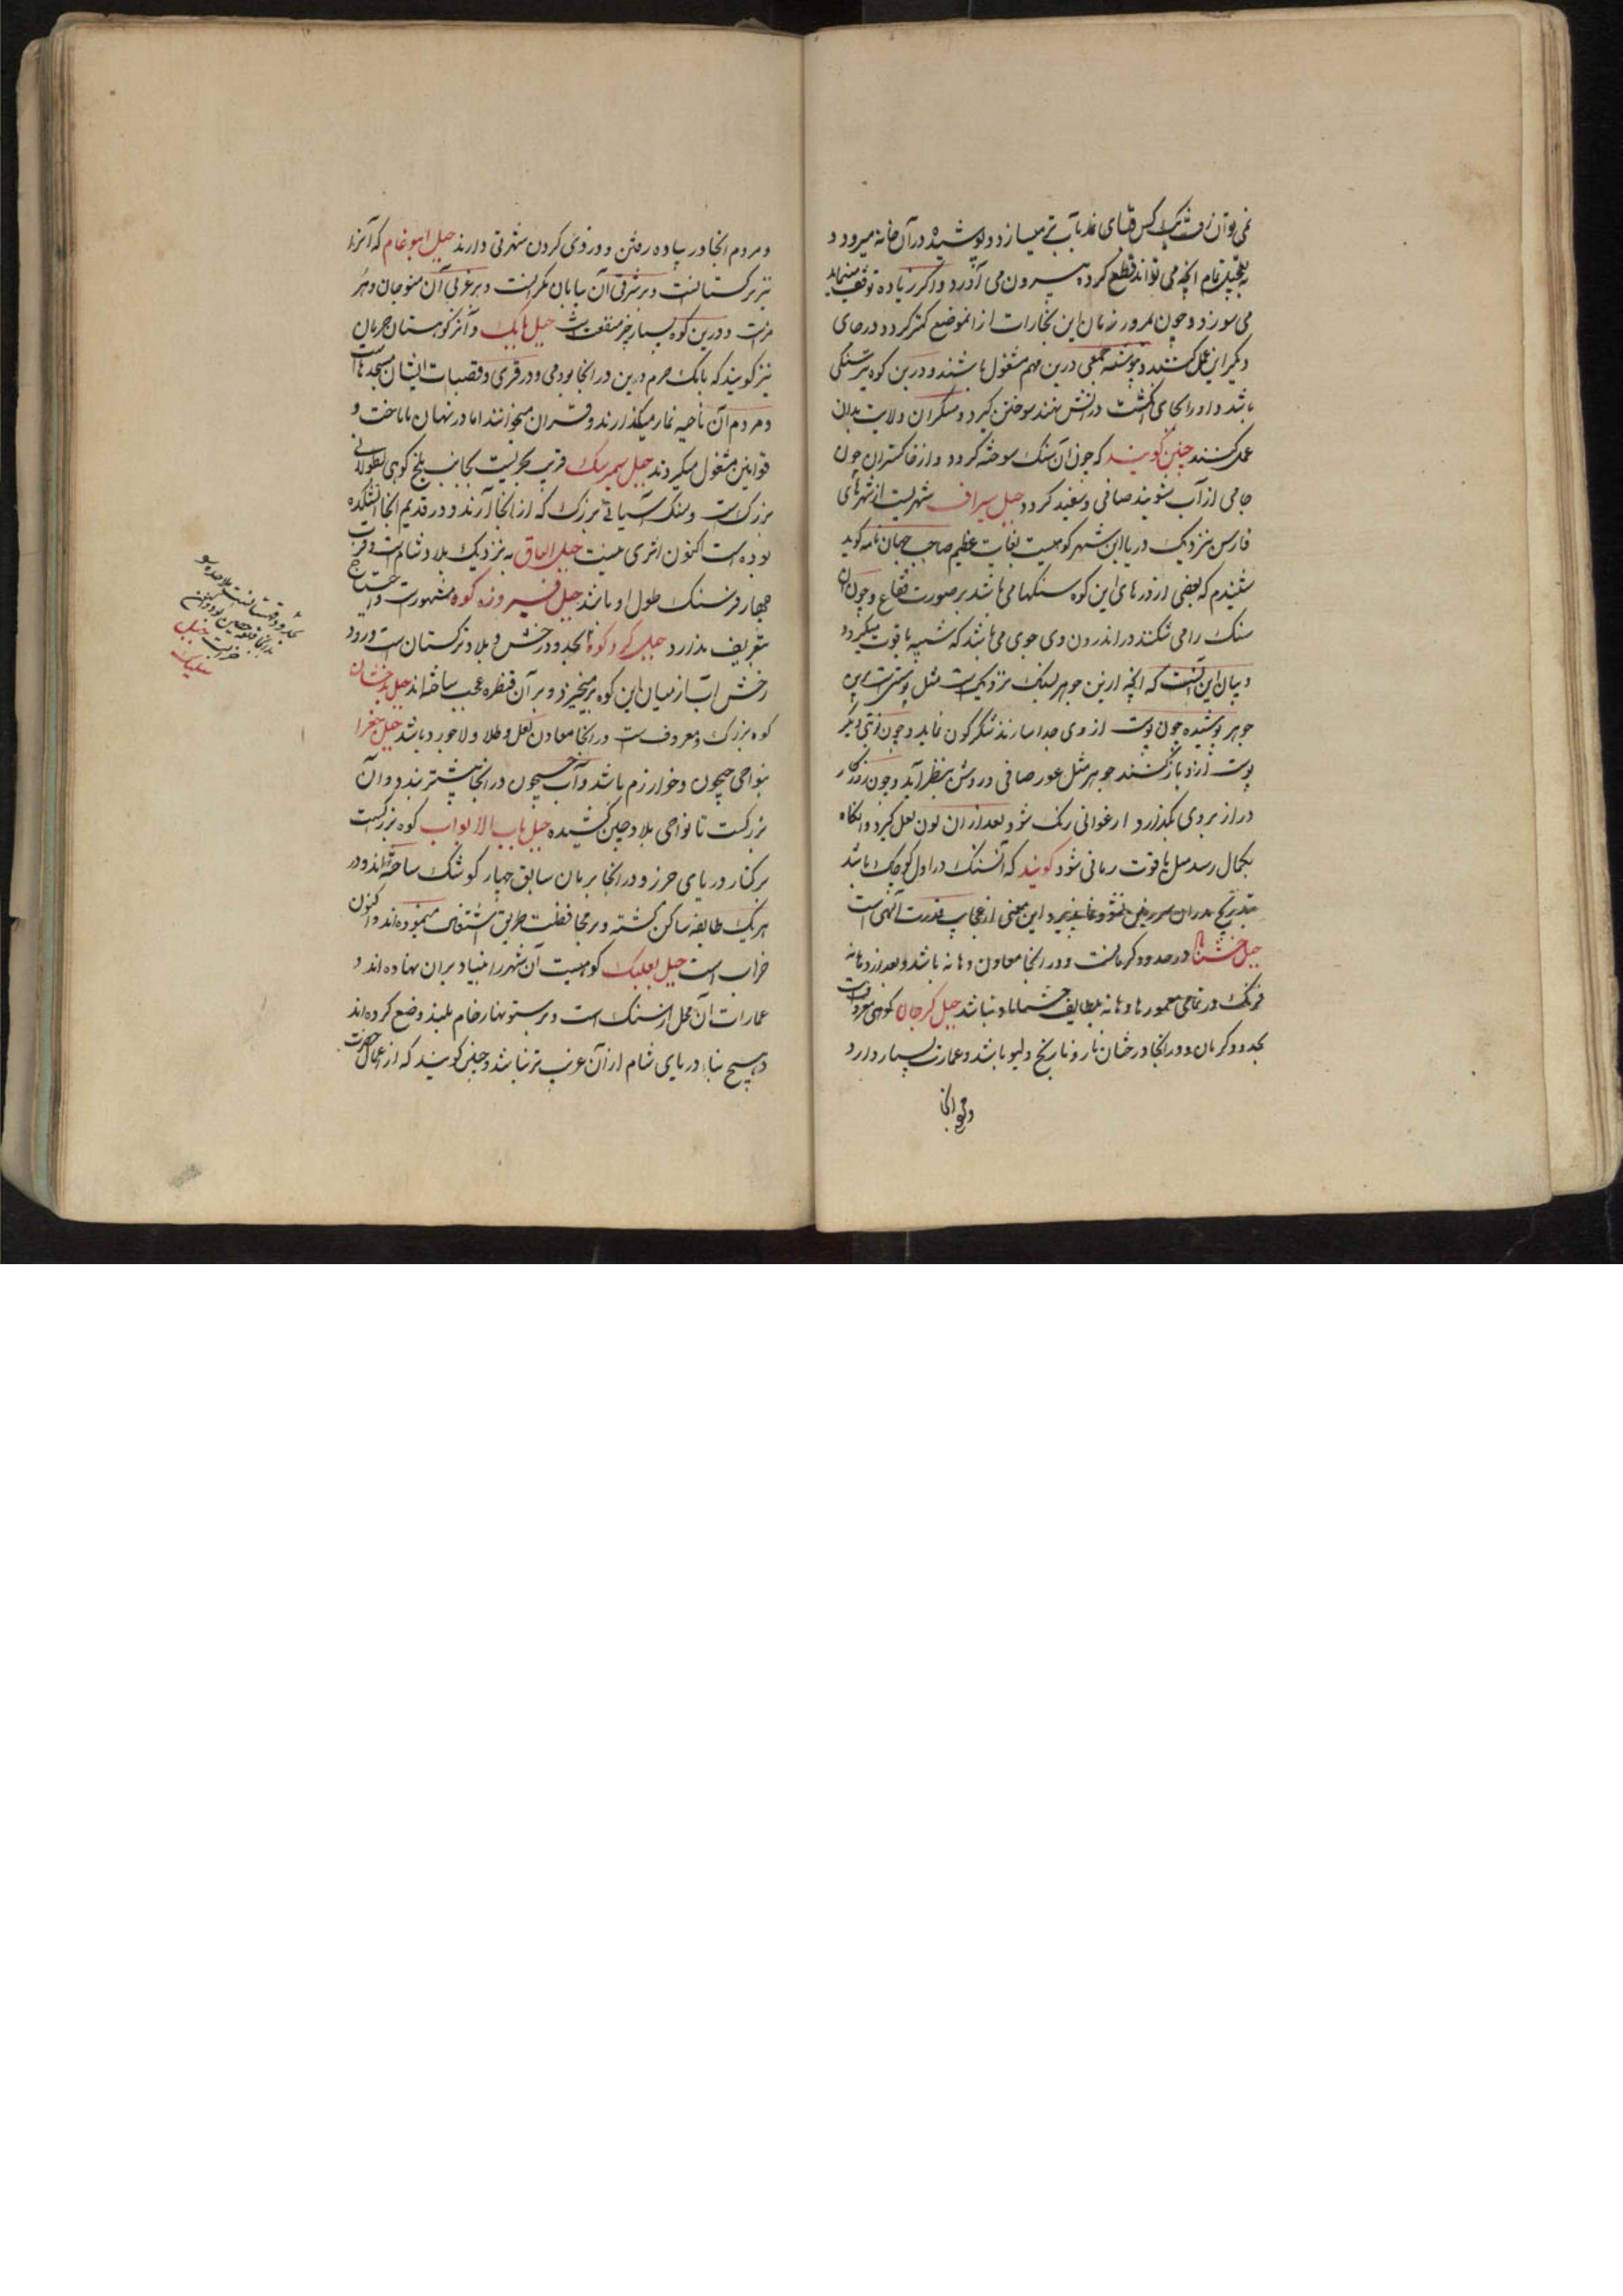 نمی توان رفت یک کس قبای نمد بآب تر میسازد و پوشیده در آن خانه میرود و
به تعجیل تمام آنچه می تواند قطع کرده بیرون می آورد و اگر زیاده توقف مینماید
می سوزد و چون بمرور زمان این بخارات از آن موضع کمتر کردد در جای
دیکر این عمل کنند و پیوسته جمعی درین مهم مشغول باشند و درین کوه نیز سنگی
باشد و او را بجای انکشت در آتش نهند سوختن کیرد و مسکران ولایت بدان
عمل کنند چنین کویند که چون آن سنک سوخته کردد و از خاکستر آن چون
جامی از آب بشویند صافی و سفید کردد جبل سیراف شهریست از شهرهای
فارس نزدیک دریا این شهر کوهیست بغایت عظیم صاحب جهان نامه کوید
شنیدم که بعضی از درهای این کوه سنکها می باشد بر صورت فقاع و چون آن
سنک را می شکنند در اندرون وی جوی می باشد که شبیه یاقوت میکردد
و بیان این آنست که آنچه ازین جوهر بسنک نزدیکست مثل پوستی است برین
جوهر پوشیده چون پوست از وی جدا سازند شکر کون نماید و چون نوبتی دیکر
پوست ازو باز کنند جوهر مثل عور صافی و روشن بنظر آید و چون روزکار
دراز بر وی بکذارد ارغوانی رنک شود بعد از ان لون لعل کیرد و آنکاه
بکمال رسد مثل یاقوت رمانی شود کویند که آن سنک در اول کوچک باشد
بتدریج بدان سرزمین نشو و نما پذیرد و این معنی از عجایب قدرت آلهی است
جبل در حدود کرمانست و در آنجا معادن باشد و بعد از
فرنک در تمامی معمورها بلطایف نباشد جبل کرجان کوهی معروفست
بحدود کرمان و در آنجا درختان نار و نارنج و لیمو باشد و عمارت بسیار دارد
و مردم آنجا
و مردم آنجا در پیاده رفتن و دزدی کردن شهرتی دارند جبل ابوغانم که آنرا
نیز بزرکستانست و بر شرقی آن بیابان مکرانست و بر غربی آن منوجان و هر
مزست و درین کوه بسیار چیز منفعت باشد جبل بابک و آنرا کوهستان خرمیان
نیز کویند که بابک خرم دین در آنجا بودمی و در قری و قصبات ایشان مسجدهاست
و مردم آن ناحیه نماز میکذارند و قران میخوانند اما در نهان باباحت و
قوانین مشغول میکردند جبل سمیرنک قریب بحریست بجانب بلخ کوهی بطولانی
بزرکست و سنک آسیائی بزرک که از آنجا آرند و در قدیم آنجا آتشکده
بوده است اکنون اثری نیست جبل العاق به نزدیک بلاد شام است و قریب
چهار فرسنک طول او باشد جبل فیروزه کوه مشهورست و احتیاج
بتعریف ندارد جبل کرد کوه بحدود رخش و بلاد ترکستان است و رود
رخش آب از میان این کوه برمیخیزد و بر آن قنطره عجب ساخته اند جبل بدخشان
کوه بزرک و معروف است در آنجا معادن لعل و طلا و لاجورد باشد جبل
بنواحی جیحون و خوارزم باشد و آب جیحون در آنجا بیشتر بندد و آن
بزرکست تا نواحی بلاد چین کشیده جبل باب الابواب کوه بزرکست
بر کنار دریای خزر و در آنجا بزمان سابق چهار کوشک ساخته اند و در
هر یک طایفه ساکن کشته و بر محافظت طریق اشتغال مینموده اند و اکنون
خراب است جبل بعلبک کوهیست آن شهر را بنیاد بر آن نهاده اند و
عمارات آن محل از سنک است و بر ستونهای رخام بلند وضع کرده اند
و هیچ بنا در بلاد شام از آن غریب تر نباشد و چنین کویند که از اعمال حضرت
بحدود قهستانست ملاحده
بدانجا قلعه حصین بوده و اکنون
خرابست جبل